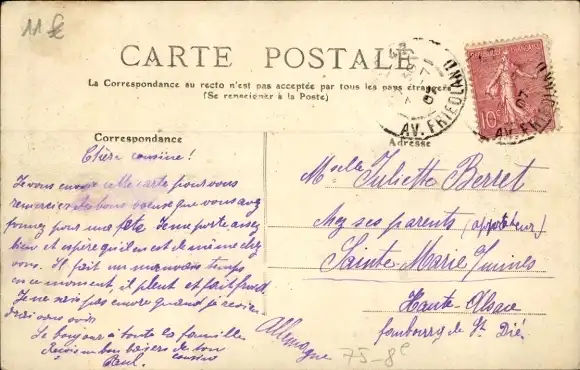 11 €
CARTE POSTALE
La Correspondance au recto n'est pas acceptée par tous les pays étrangers
(Se renseigner à la Poste)
Correspondance
Chère cousine!
Je vous envoie cette carte pour vous
remercier des bons voeux que vous avez
pour ma fête. Je me porte assez
bien et espère qu'il en est de même chez
vous. Il fait un mauvais temps
en ce moment, il pleut et fait froid.
Je ne sais pas encore quand je
vous voir
Le bonjour à toute la famille
bons baisers de ton
cousin
Paul.
Adresse
Mselle Juliette Berret
chez ses parents
Sainte-Marie Mines
Haute Alsace
faubourg de St Dié
Allemagne
75-8e
AV. FRIEDLAND
07
10
AV. FRIEDLAND
07